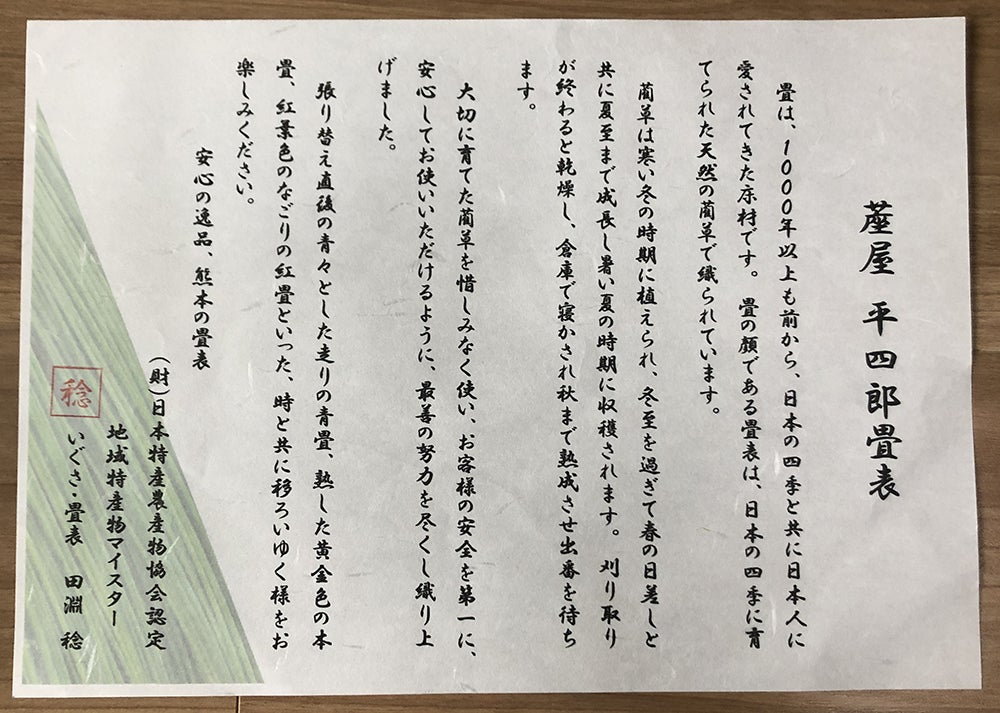 蓙屋 平四郎畳表
畳は、1000年以上も前から、日本の四季と共に日本人に
愛されてきた床材です。畳の顔である畳表は、日本の四季に育
てられた天然の藺草で織られています。
藺草は寒い冬の時期に植えられ、冬至を過ぎて春の日差しと
共に夏至まで成長し暑い夏の時期に収穫されます。刈り取り
が終わると乾燥し、倉庫で寝かされ秋まで熟成させ出番を待ち
ます。
大切に育てた藺草を惜しみなく使い、お客様の安全を第一に、
安心してお使いいただけるように、最善の努力を尽くし織り上
げました。
張り替え直後の青々とした走りの青畳、熟した黄金色の本
畳、紅葉色のなごりの紅畳といった、時と共に移ろいゆく様をお
楽しみください。
安心の逸品、熊本の畳表
(財)日本特産農産物協会認定
地域特産物マイスター
いぐさ・畳表 田淵 稔
稔